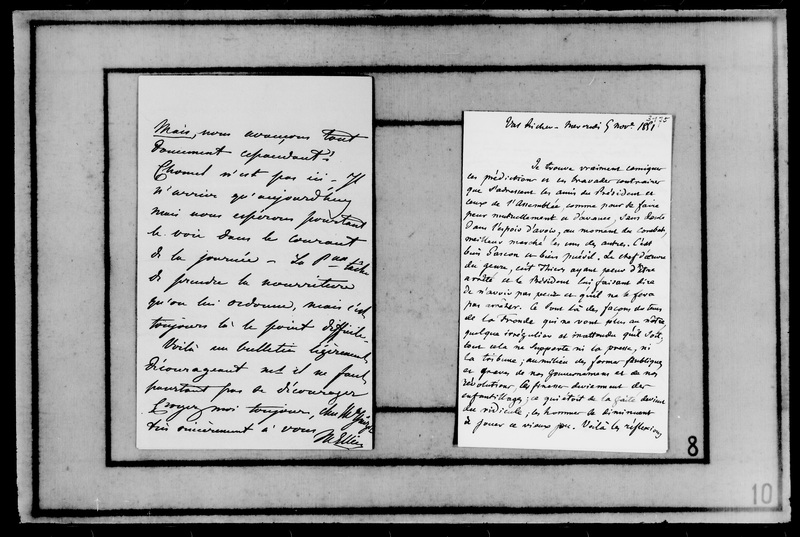 Mais, nous avançons tout
doucement cependant!
Chomel n'est pas ici - Il
n'arrive qu'aujourd'huy
mais nous espérons pourtant
le voir dans le courant
de la journée - La Psse tâche
de prendre la nourriture
qu'on lui ordonne, mais c'est
toujours là le point difficile -
Voilà un bulletin légèrement
décourageant et il ne faut
pourtant pas se décourager
Croyez moi toujours, cher M.
très sincèrement à vous
3175
Val Richer - Mercredi 5 novbre 1851
Je trouve vraiment comiques
ces prédictions et ces bravades contraires
que s'adressent les amis du Président et
ceux de l'Assemblée comme pour se faire
peur mutuellement et d'avance, sans doute
dans l'espoir d'avoir, au moment du combat,
meilleur marché les uns des autres. C'est
bien Gascon et bien puéril. Le chef d'œuvre
du genre, c'est Thiers ayant peur d'être
arrêté et le Président lui faisant dire
de n'avoir pas peur et qu'il ne le fera
pas arrêter. Ce sont là des façons du tems
de la Fronde qui ne vont plus au nôtre,
quelque irrégulier et inattendu qu'il soit,
tout cela ne supporte ni la presse, ni
la tribune; au milieu des formes publiques
et graves de nos gouvernemens et de nos
révolutions, les finesses deviennent des
enfantillages; ce qui était de la gaîté devient
du ridicule, les hommes se diminuent
à jouer ce vieux jeu. Voilà les réflexions
8
10